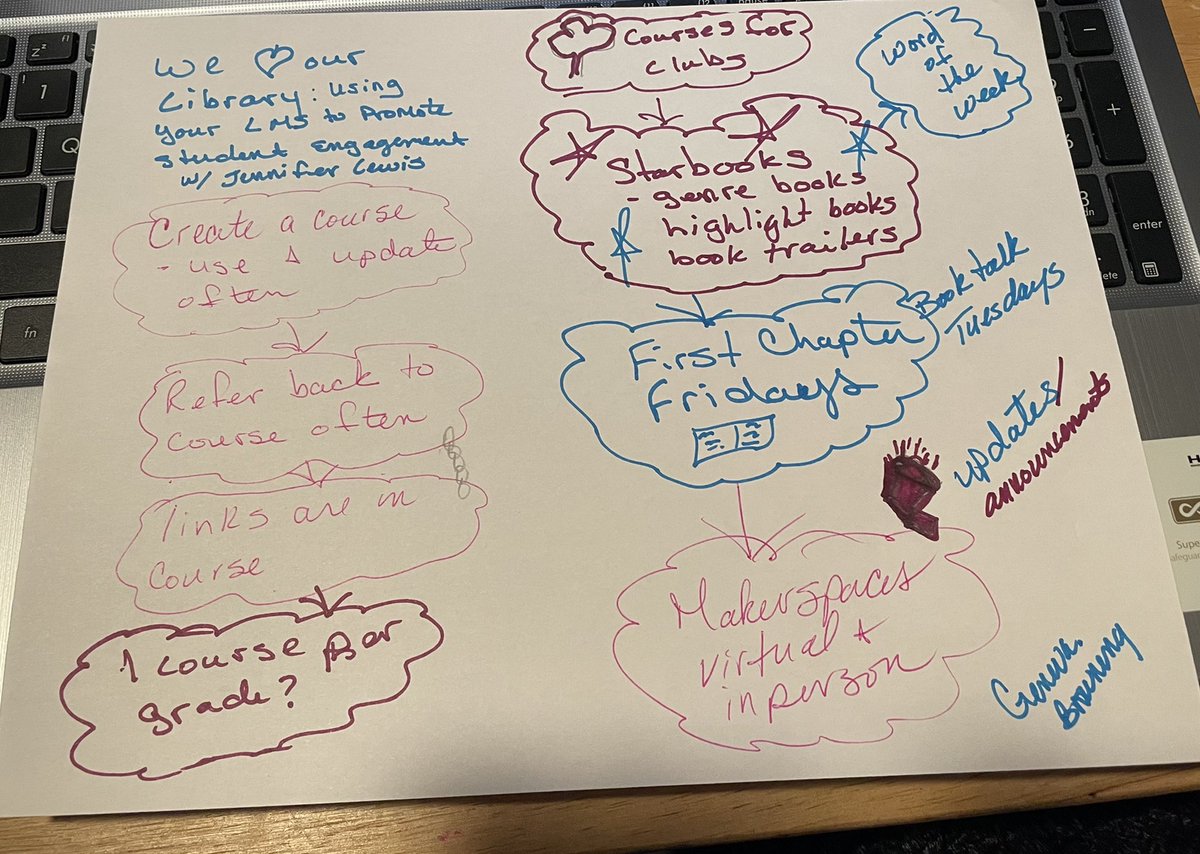 We ♡ our
Library: using
your LMS to Promote
Student Engagement
w/ Jennifer Lewis
Create a course
- use & update
often
Refer back to
course often
links are in
course
1 course per
grade?
Courses for
clubs
Word
of
the
week
Starbooks
- genre books
highlight books
book trailers
First Chapter
Fridays
Booktalk
Tuesdays
updates/
announcements
Makerspaces
virtual &
in person
Browning
fn
enter
Q
1
+
-